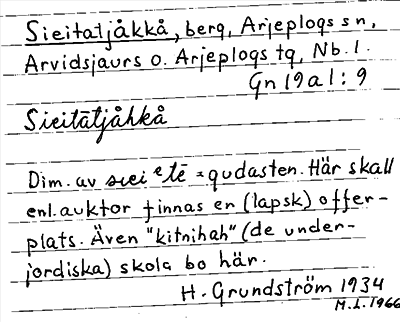 Sieitatjåkkå, berg, Arjeplogs sn,
Arvidsjaurs o. Arjeplogs tg, Nb.l.
Gn 19 a l : 9
Sieitātjåhkå
Dim. av siei e tē = gudasten. Här skall
enl. auktor finnas en (lapsk) offer-
plats. Även "kitnihah" (de under-
jordiska) skola bo här.
H. Grundström 1934
M.L. 1966